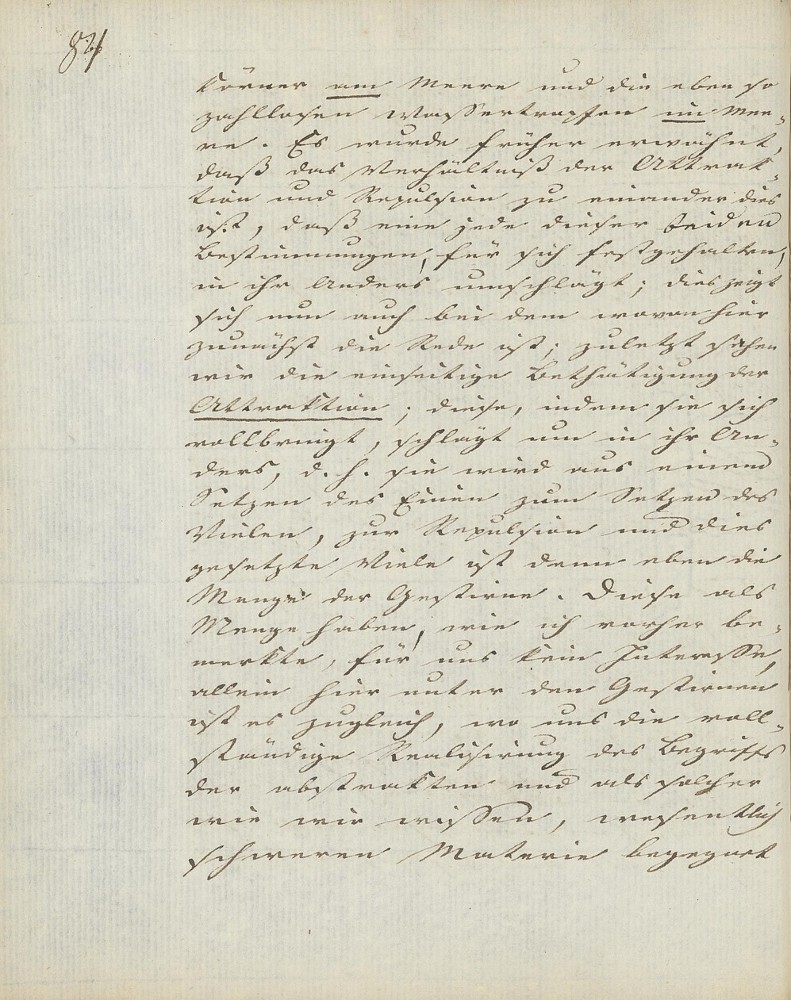 84
Körner am Meere und die eben so
zahllosen Wassertropfen im Mee-
re. Es wurde früher erwähnt,
daß das Verhältniß der Attrak-
tion und Repulsion zu einander dies
ist, daß eine jede dieser beiden
Bestimmungen, für sich festgehalten,
in ihr Anders umschlägt; dies zeigt
sich nun auch bei dem wovon hier
zunächst die Rede ist; zuletzt sahen
wir die einseitige Bethätigung der
Attraktion; diese, indem sie sich
vollbringt, schlägt um in ihr An-
ders, d. h. sie wird aus einem
Setzen des Einen zum Setzen des
Vielen, zur Repulsion und dies
gesetzte Viele ist denn eben die
Menge der Gestirne. Diese als
Menge haben, wie ich vorher be-
merkte, für uns kein Interesse,
allein hier unter den Gestirnen
ist es zugleich, wo uns die voll-
ständige Realisirung des Begriffs
der abstrakten und als solcher
wie wir wissen, wesentlich
schweren Materie begegnet